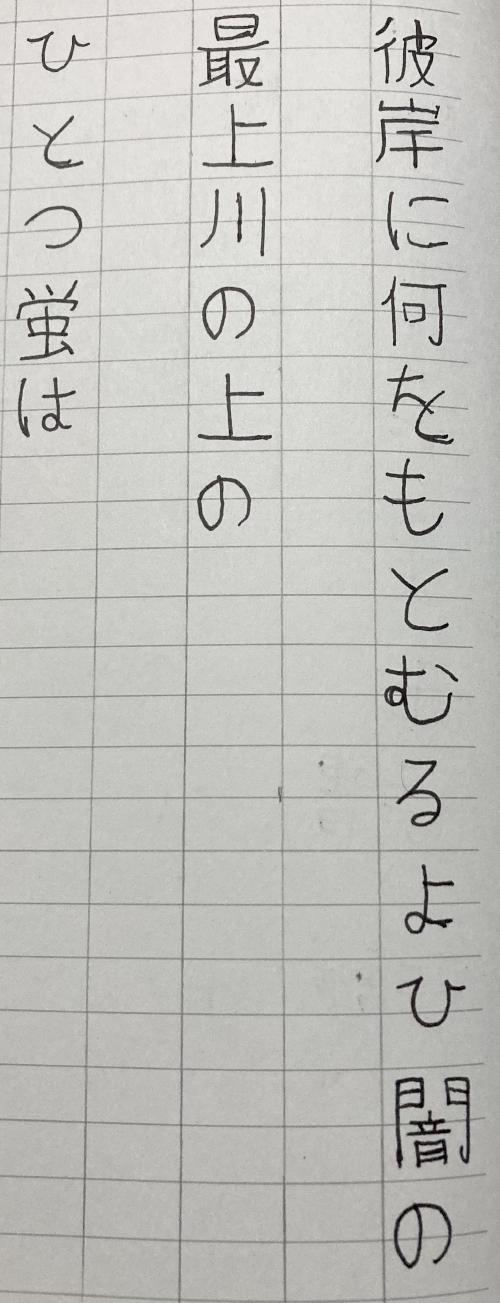 彼岸に何をもとむるよひ闇の
最上川の上の
ひとつ蛍は